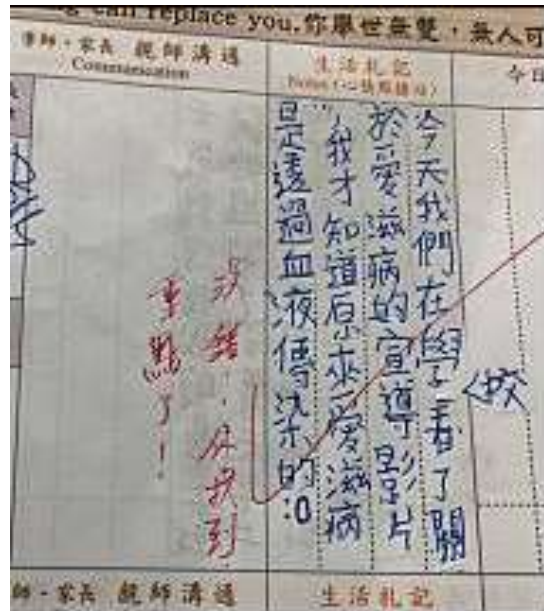 ng can replace you.你舉世無雙，無人可
導師·家長 親師溝通
Communication
生活札記
Notes
今日
今天我們在學看了關
校
於愛滋病的宣導影片
，我才知道原來愛滋病
是透過血液傳染的:O
沒錯，你找到
重點了！
師·家長 親師溝通
生活札記